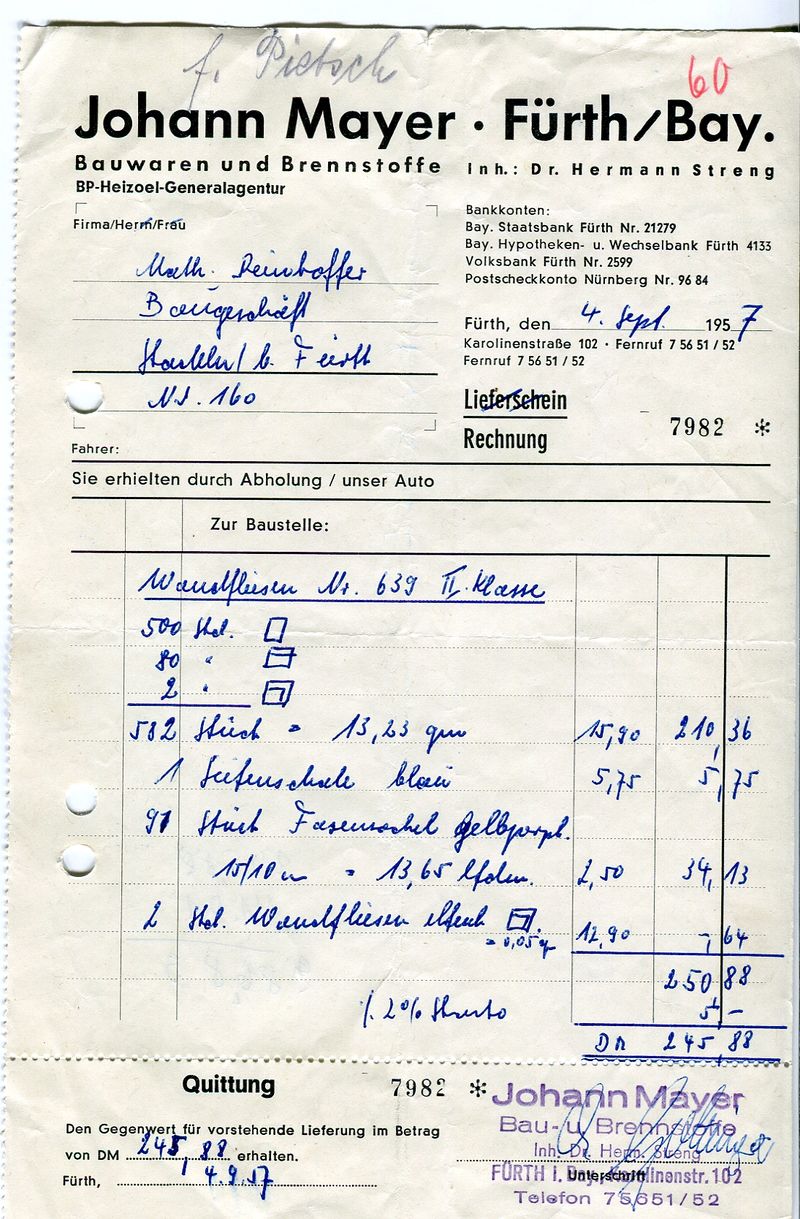 f. Pietsch
60
Johann Mayer · Fürth/Bay.
Bauwaren und Brennstoffe Inh.: Dr. Hermann Streng
BP-Heizoel-Generalagentur
Firma/Herrn/Frau
Math. Reinhoffer
Baugeschäft
b. Fürth
Nr. 160
Fahrer:
Bankkonten:
Bay. Staatsbank Fürth Nr. 21279
Bay. Hypotheken- u. Wechselbank Fürth 4133
Volksbank Fürth Nr. 2599
Postscheckkonto Nürnberg Nr. 96 84
Fürth, den 4. Sept. 1957
Karolinenstraße 102 · Fernruf 7 56 51 / 52
Fernruf 7 56 51 / 52
Lieferschein
Rechnung 7982 *
Sie erhielten durch Abholung / unser Auto
Zur Baustelle:
Wandfliesen Nr. 639 II. Klasse
500 Stck.
80 "
2 "
582 Stück = 13,23 qm 15,90 210,36
1 Seifenschale blau 5,75 5,75
91 Stück Fasensockel gelbporph.
15/10 = 13,65 lfdm. 2,50 34,13
2 Stck. Wandfliesen elfenb.
= 0,05 qm 12,90 -,64
250 88
./. 2% Skonto 5,-
DM 245,88
Quittung 7982 *
Den Gegenwert für vorstehende Lieferung im Betrag
von DM 245,88 erhalten.
Fürth, 4.9.57
Johann Mayer
Bau- u. Brennstoffe
Inh. Dr. Herm. Streng
FÜRTH i. Bay., Karolinenstr. 102
Unterschrift
Telefon 75651/52